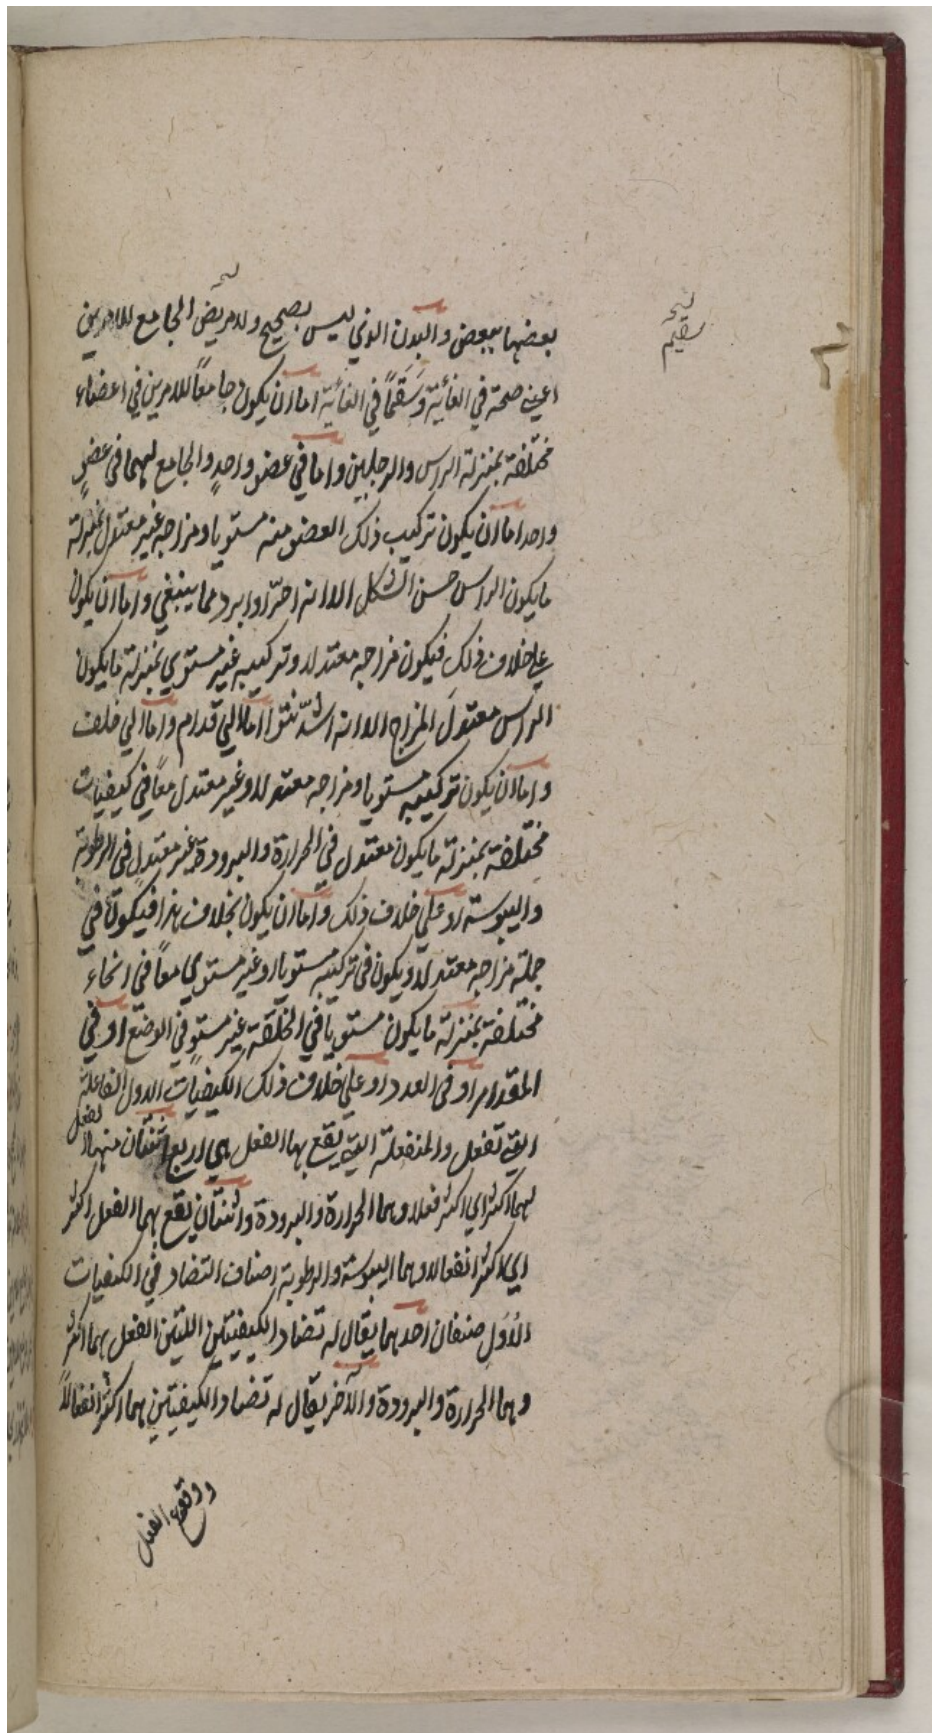 نسخه
نسخه
سقيم
بعضها ببعض والبدن الذي ليس بصحيح ولا مريض الجامع للامرين
اعني صحة في الغائية وسَقَماً في الغائية اما ان يكون جامعاً للامرين في اعضاء
مختلفة بمنزلة الراس والرجلين واما في عضو واحدٍ والجامع لهما في عضوٍ
واحد اما ان يكون تركيب ذلك العضو منه مستويا ومزاجه غير معتدل بمنزلة
ما يكون الراس حسن الشكل الا انه احرّ او ابرد مما ينبغي واما ان يكون
على خلاف ذلك فيكون مزاجه معتدلا وتركيبه غير مستوي بمنزلة ما يكون
الراس معتدلَ المزاج الا انه اشدّ نتؤا اما الي قدام واما الي خلف
واما ان يكون تركيبه مستويا ومزاجه معتدلا وغير معتدل معاً في كيفيات
مختلفة بمنزلة ما يكون معتدل في الحرارة والبرودة غير معتدلٍ في الرطوبة
واليبوسة او علي خلاف ذلك واما ان يكون بخلاف هذا فيكون في
جملة مزاجه معتدلا ويكون في تركيبه مستويا وغير مستوي معاً في انحاء
مختلفة بمنزلة ما يكون مستويا في الخلقة غير مستوٍ في الوضع او في
المقدار او في العدد او علي خلاف ذلك الكيفيات الاول الفاعلة
التي تفعل والمنفعلة التي يقع بها الفعل هي اربع اثنتان منها الفعل
بهما اكثر اي اكثر فعلا وهما الحرارة والبرودة واثنتان يقع بهما الفعل اكثر
اي اكثر انفعالا وهما اليبوسة والرطوبة اصناف التضاد في الكيفيات
الاُوَل صنفان احدهما يقال له تضاد الكيفيتين اللتين الفعل بهما اكثر
وهما الحرارة والبرودة والآخر يقال له تضاد الكيفيتين بهما اكثر انفعالاً
ووقوع الفعل